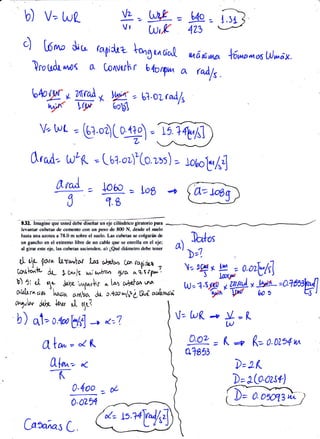 b) V= ωR    V2/V1 = ω2R/ω1R = 640/423 = 1.51
c) Como dice rapidez tangencial máxima tomamos ωmáx.
Procedemos a convertir 640rpm a rad/s.
640 rev/min x 2π rad/1 rev x 1min/60s = 67.02 rad/s
V= ωR = (67.02)(0.470/2) = 15.74[m/s]
arad= ω²R = (67.02)²(0.235) = 1060[m/s²]
arad/g = 1060/9.8 = 108 → a=108g
9.32. Imagine que usted debe diseñar un eje cilíndrico giratorio para
levantar cubetas de cemento con un peso de 800 N, desde el suelo
hasta una azotea a 78.0 m sobre el suelo. Las cubetas se colgarán de
un gancho en el extremo libre de un cable que se enrolla en el eje;
al girar este eje, las cubetas ascienden. a) ¿Qué diámetro debe tener
el eje para levantar las cubetas con rapidez
constante de 2 cm/s mientras gira a 7.5 rpm?
b) Si el eje debe impartir a las cubetas una
aceleración hacia arriba de 0.400 m/s² ¿Qué aceleración
angular debe tener el eje?
a) Datos
D=?
V= 2 cm/s x 1m/100cm = 0.02[m/s]
ω= 7.5 rev/min x 2π rad/1 rev x 1min/60 s = 0.7853[rad/s]
V= ωR → V/ω = R
0.02/0.7853 = R → R= 0.0254m
D=2R
D=2(0.0254)
D= 0.05093 m
b) a1= 0.400[m/s²] → α=?
a tan = αR
a tan/R = α
0.400/0.0254 = α
α= 15.74[rad/s²]
Casañas C.